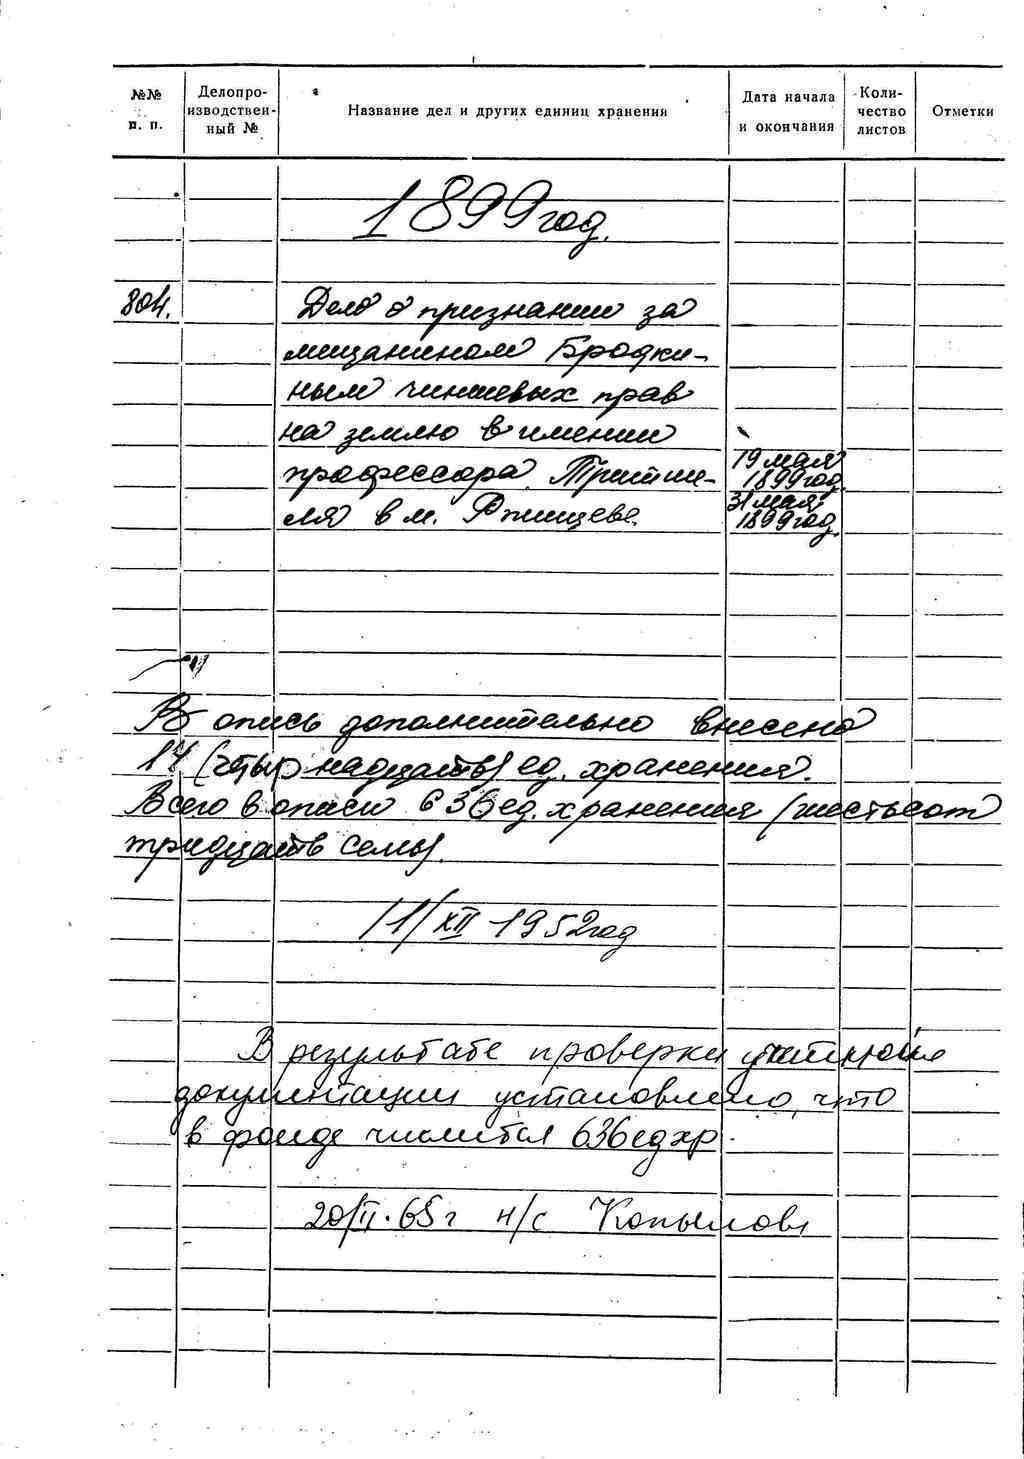 №№ п. п.
Делопро-
изводствен-
ный №
Название дел и других единиц хранения
Дата начала
и окончания
Коли-
чество
листов
Отметки
1899 год.
804. Дело о признании за
мещанином Бродки-
ным чиншевых прав
на землю в имении
профессора Тритше-
ля в м. Ржищеве.
19 мая
1899 год.
31 мая
1899 год.
В опись дополнительно внесено
14 (четырнадцать) ед. хранения.
Всего в описи 636 ед. хранения (шестьсот
тридцать семь).
11/XII-1952 год
В результате проверки учетной
документации установлено, что
в фонде числится 636 ед хр.
20/II.65 г н/с Копылова